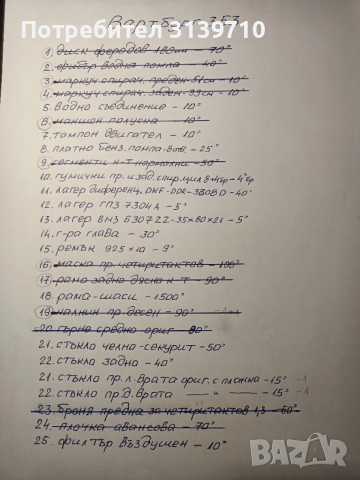 Вартбург 353
1. диск феродов 180мм - 70°
2. фибър водна помпа - 40°
3. маркуч спирач. преден 51см - 10°
4. маркуч спирач. заден - 33см - 10°
5. водно съединение - 10°
6. маншон полуска - 10°
7. тампон двигател - 10°
8. платно бенз. помпа - 8 отв. - 25°
9. сегменти к-т нормални - 50°
10. гумички пр. и зад. спир. цил 8+4бр - 4°бр
11. лагер диференц. DNF-DDR-3BOBD - 40°
12. лагер ГПЗ 7304А - 5°
13. лагер ВМЗ 630722-35x80x21 - 5°
14. г-ра глава - 30°
15. ремък 925x10 - 9°
16. маска пр. четиритактов - 100°
17. рамо задно дясно к-т - 90°
18. рама-шаси - 1500°
19. калник пр. десен - 90°
20. гърне средно ориг 80°
21. стъкло челно-секурит - 50°
22. стъкло задно - 40°
21. стъкло пр. л. врата ориг. с планка - 15° -1
22. стъкло пр. д. врата — и — - 15° -1
23. броня предна за четиритактов 1,3 - 60°
24. плочка авансова - 70°
25. филтър въздушен - 10°
BAZAR